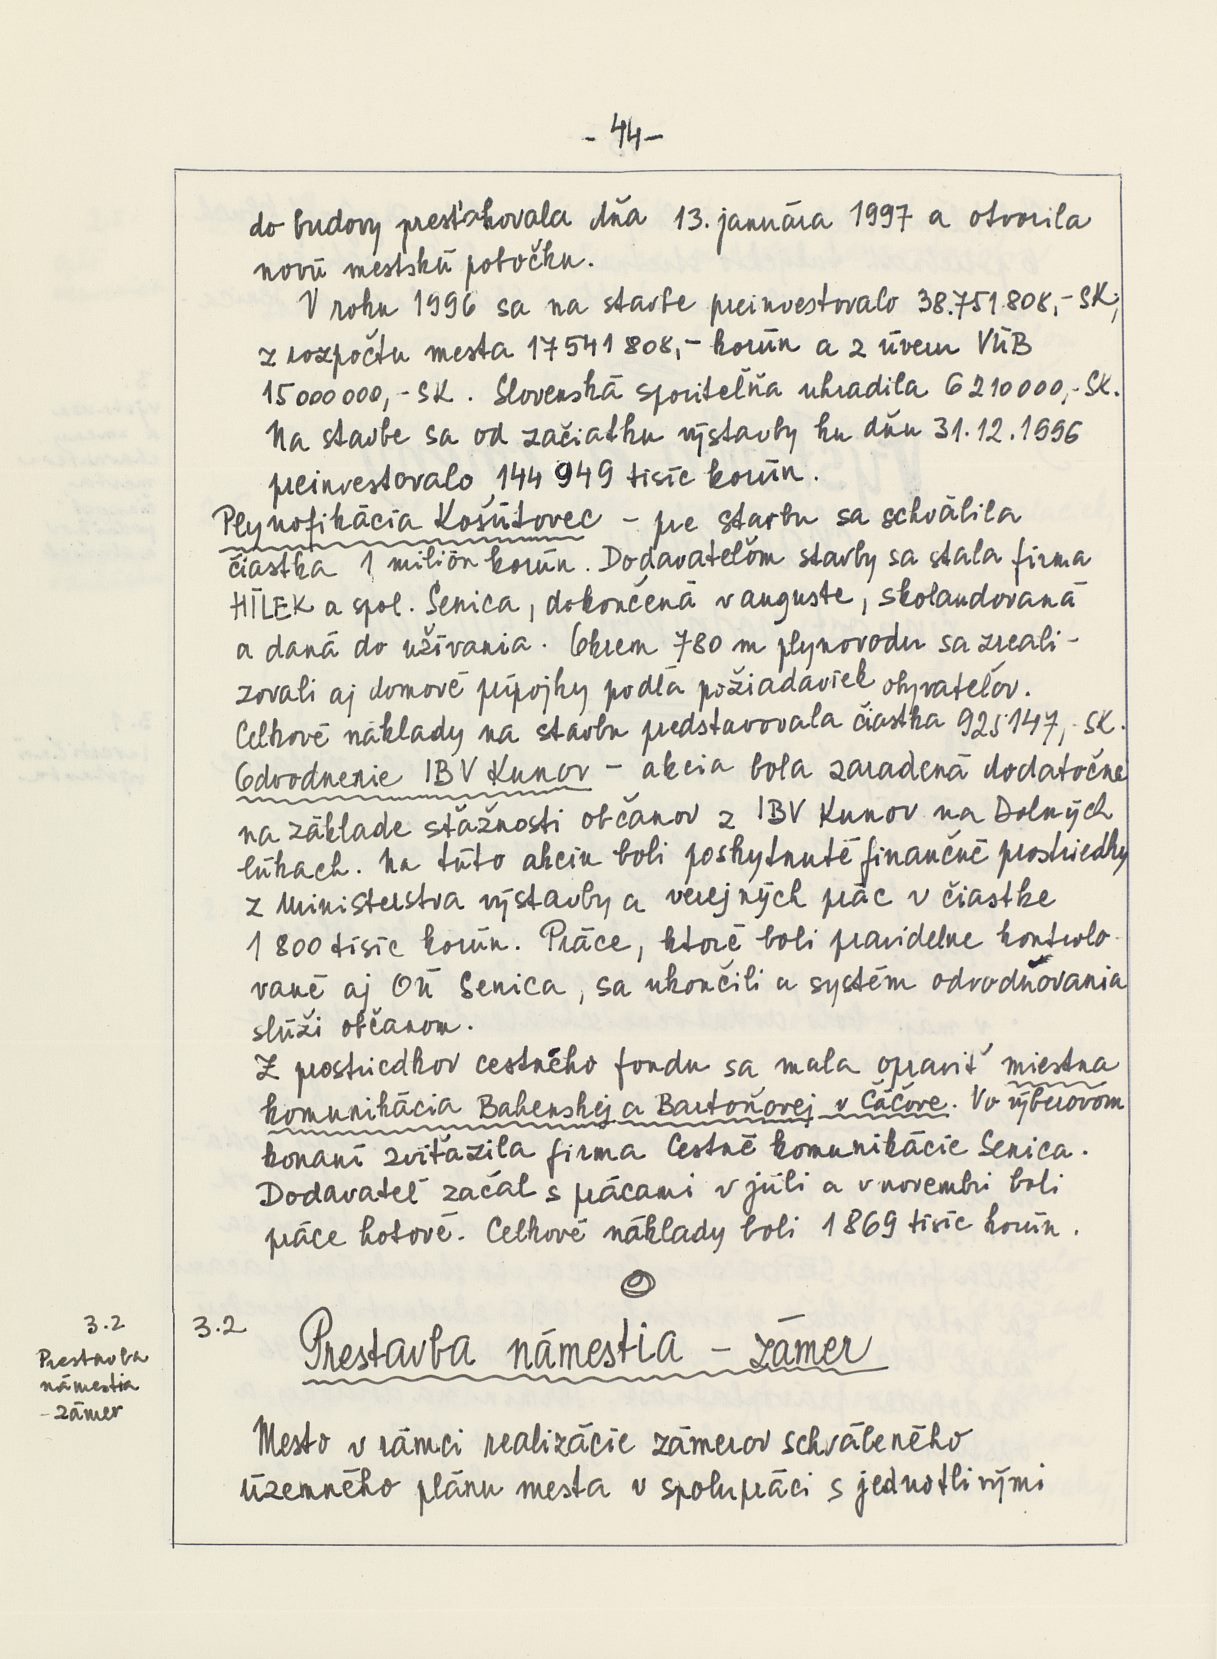 - 44 -
do budovy presťahovala dňa 13. januára 1997 a otvorila
novú mestskú pobočku.
V roku 1996 sa na stavbe preinvestovalo 38.751 808,- SK;
z rozpočtu mesta 17 541 808,- korún a z úveru VÚB
15 000 000,- SK. Slovenská sporiteľňa uhradila 6 210 000,- SK.
Na stavbe sa od začiatku výstavby ku dňu 31.12.1996
preinvestovalo 144 949 tisíc korún.
Plynofikácia Košútovec - pre stavbu sa schválila
čiastka 1 milión korún. Dodávateľom stavby sa stala firma
HÍLEK a spol. Senica, dokončená v auguste, skolaudovaná
a daná do užívania. Okrem 780 m plynovodu sa zreali-
zovali aj domové prípojky podľa požiadaviek obyvateľov.
Celkové náklady na stavbu predstavovala čiastka 925 147,- SK.
Odvodnenie IBV Kunov - akcia bola zaradená dodatočne
na základe sťažnosti občanov z IBV Kunov na Dolných
lúkach. Na túto akciu boli poskytnuté finančné prostriedky
z Ministerstva výstavby a verejných prác v čiastke
1 800 tisíc korún. Práce, ktoré boli pravidelne kontrolo-
vané aj OÚ Senica, sa ukončili a systém odvodňovania
slúži občanom.
Z prostriedkov cestného fondu sa mala opraviť miestna
komunikácia Bahenskej a Bartoňovej v Čáčove. Vo výberovom
konaní zvíťazila firma Cestné komunikácie Senica.
Dodávateľ začal s prácami v júli a v novembri boli
práce hotové. Celkové náklady boli 1 869 tisíc korún.
3.2
Prestavba
námestia
- zámer
3.2 Prestavba námestia - zámer
Mesto v rámci realizácie zámerov schváleného
územného plánu mesta v spolupráci s jednotlivými